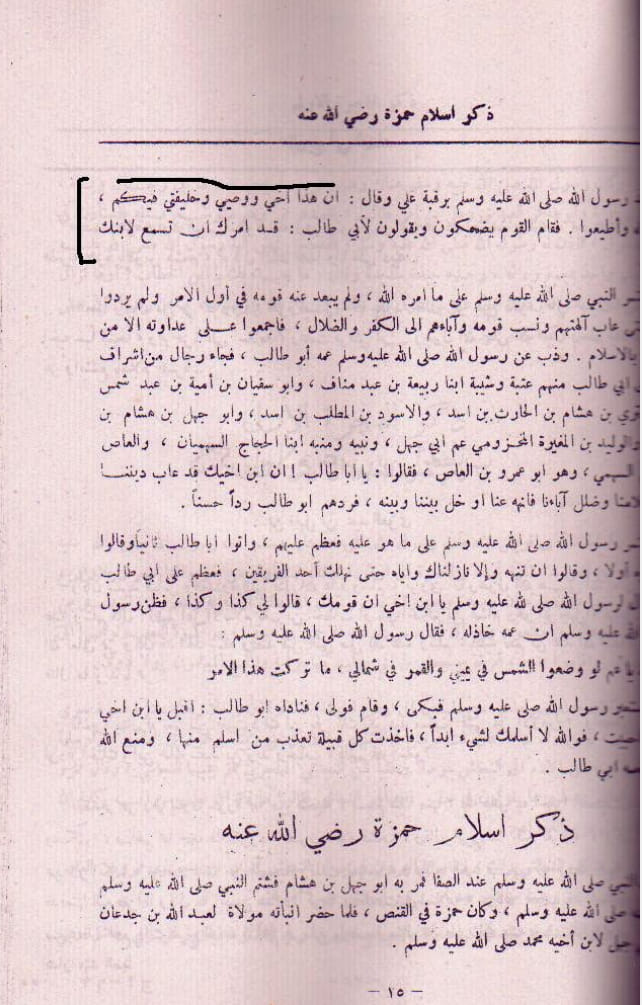 ذكر اسلام حمزة رضي الله عنه
رسول الله صلى الله عليه وسلم برقبة علي وقال : ان هذا اخي ووصيي وخليفتي فيكم ،
وأطيعوا . فقام القوم يضحكون ويقولون لأبي طالب : قد امرك ان تسمع لابنك
النبي صلى الله عليه وسلم على ما امره الله ، ولم يبعد عنه قومه في أول الامر ولم يردوا
عاب آلهتهم ونسب قومه وآباءهم الى الكفر والضلال ، فاجمعوا على عداوته الا من
بالاسلام . وذب عن رسول الله صلى الله عليه وسلم عمه أبو طالب ، فجاء رجال من اشراف
ابي طالب منهم عتبة وشيبة ابنا ربيعة بن عبد مناف ، وابو سفيان بن أمية بن عبد شمس
بن هشام بن الحارث بن اسد ، والاسود بن المطلب بن اسد ، وابو جهل بن هشام بن
والوليد بن المغيرة المخزومي عم ابي جهل ، ونبيه ومنبه ابنا الحجاج السهميان ، والعاص
السهمي ، وهو ابو عمرو بن العاص ، فقالوا : يا ابا طالب ! ان ابن اخيك قد عاب ديننا
وضلل آباءنا فانهه عنا او خل بيننا وبينه ، فردهم ابو طالب رداً حسناً .
رسول الله صلى الله عليه وسلم على ما هو عليه فعظم عليهم ، واتوا ابا طالب ثانياً وقالوا
أولا ، وقالوا ان تنهه وإلا نازلناك واياه حتى نهلك أحد الفريقين ، فعظم على ابي طالب
لرسول الله صلى لله عليه وسلم يا ابن اخي ان قومك ، قالوا لي كذا و كذا ، فظن رسول
الله عليه وسلم ان عمه خاذله ، فقال رسول الله صلى الله عليه وسلم :
يا عم لو وضعوا الشمس في يميني والقمر في شمالي ، ما تركت هذا الامر
رسول الله صلى الله عليه وسلم فبكى ، وقام فولى ، فناداه ابو طالب : اقبل يا ابن اخي
فوالله لا أسلمك لشيء ابداً ، فاخذت كل قبيلة تعذب من اسلم منها ، ومنع الله
ابي طالب .
ذكر اسلام حمزة رضي الله عنه
النبي صلى الله عليه وسلم عند الصفا فمر به ابو جهل بن هشام فشتم النبي صلى الله عليه وسلم
صلى الله عليه وسلم ، وكان حمزة في القنص ، فلما حضر انبأته مولاة لعبد الله بن جدعان
جهل لابن أخيه محمد صلى الله عليه وسلم .
– ١٥ –